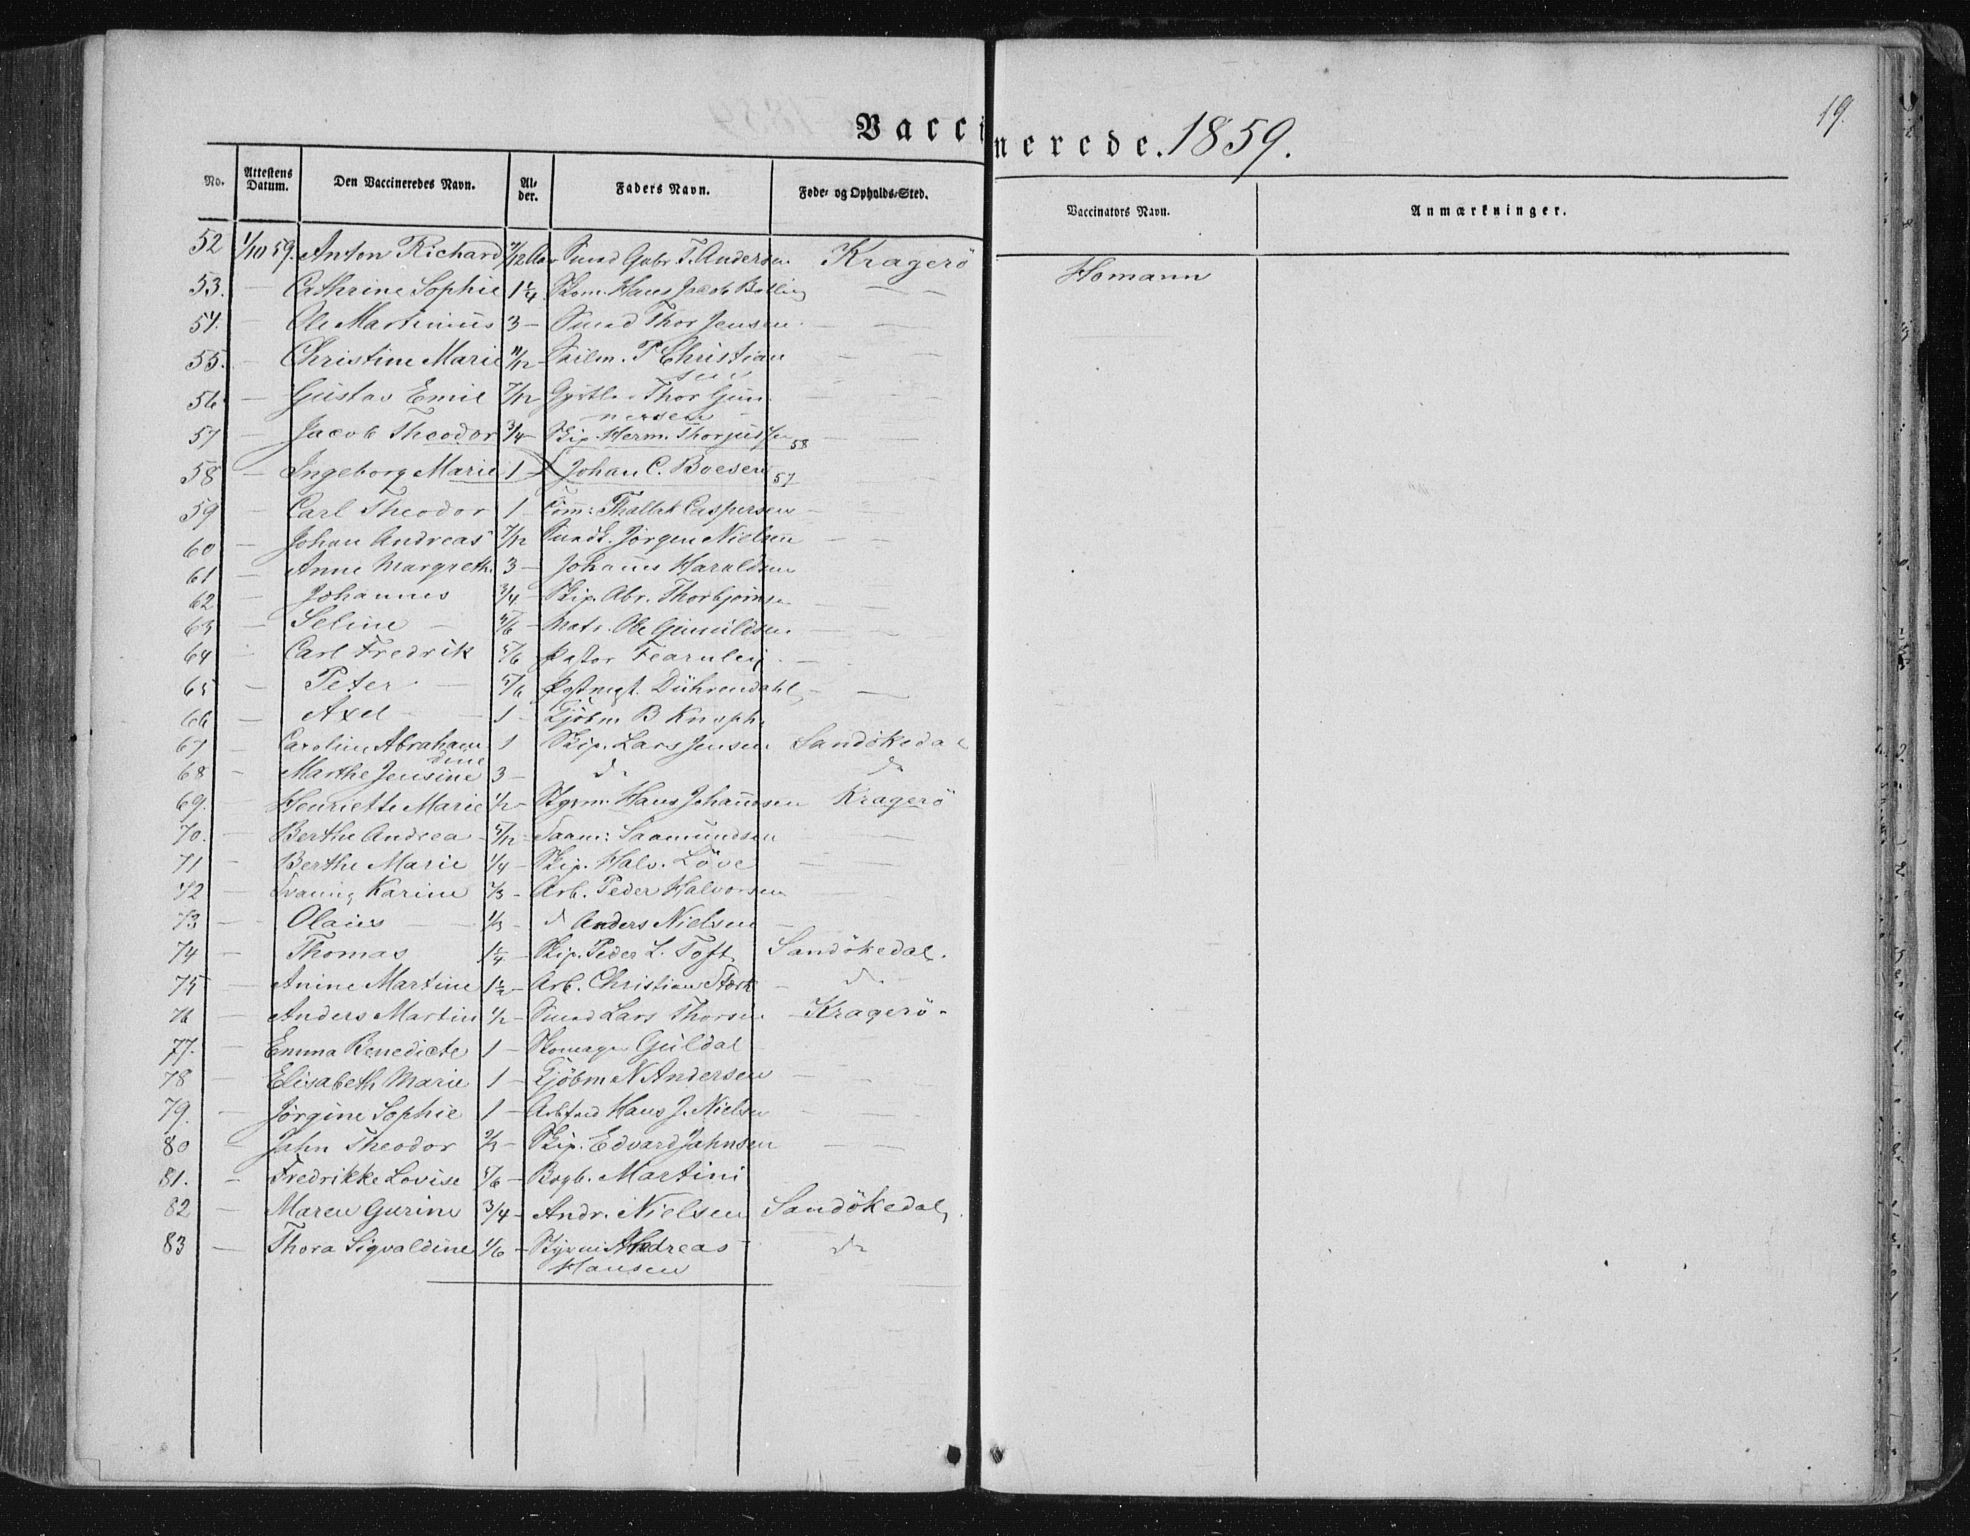 Vaccinerede. 1859.
19.
No. Attestens Datum. Den Vaccineredes Navn. Alder. Faders Navn. Føde- og Opholds-Sted. Vaccinators Navn. Anmærkninger.
52 1/10 59. Anton Richard Smed Gabr. T. Andersen Kragerö Homann
53. — Cathrine Sophie 1 1/4 Skom. Hans Jacob — —
54. — Ole Martinius 3 — Smed Thor Jensen — —
55. — Christine Marie 11/12 P Christian — —
sen
56 — Gustav Emil 7/12 Thor Gun — —
nersen
57 — Jacob Theodor 3/4 — Skip. Herm. Thorjussen 58 —
58 — Ingeborg Marie 1 Johan C. Boesen 57
59 — Carl Theodor 1 — Caspersen —
60 — Johan Andreas 7/12 Jørgen Nielsen — —
61 — Anne Margreth. 3 — Johannes Haraldsen
62 — Johannes 3/4 — Skip. Abr. Thorbjørnsen — —
63 — Seline — 5/6 — Matr. Ole — —
64 Carl Fredrik 5/6 Pastor Fearnley. —
65 — Peter. — 5/6 Dührendahl — —
66 — Axel — 1 — Kjøbm B Knoph.
67 — Caroline Abraham 1 Skip. Lars Jensen Sandökedal
dine
68 — Marthe Jensine 3 — do do
69. — Henriette Marie 1/2 — Styrm. Hans Johannsen Kragerö
70. — Berthe Andrea — 5/12 — Saamundsen — —
71 — Berthe Marie 1/4 — Skip. Halv. Löve — —
72 — Karine 1/3 — Arb. Peder Halvorsen — —
73 — Olaus — 1/3 — do Anders Nielsen —
74 — Thomas 1 1/4 — Skip. Peder L. Toft Sandökedal.
75 — Anine Martine 1 1/2 — Arb. Christian — do
76 — Anders Martin 1/2 — Smed Lars Thorsen — Kragerö.
77. — Emma Benedicte 1 — Skomager Guldal —
78 — Elisabeth Marie 1 — Kjöbm N Andersen — —
79. — Jørgine Sophie 1 — Hans J. Nielsen — —
80 — Jahn Theodor 2/3 — Skip. Edvard Jahnsen — —
81. — Fredrikke Lovise 5/6 — Bogb. Martini
82 — Maren Gurine 3/4 — Andr. Nielsen Sandökedal.
83 — Thora Sigvaldine 1/6 — Styrm. Andreas do
Hansen